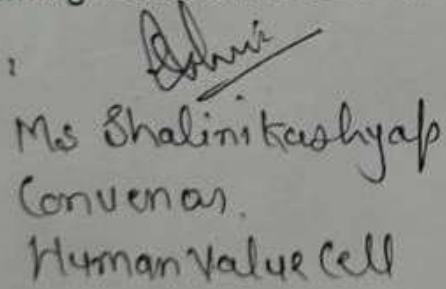 :
Ms Shalini Kashyap
Convenor.
Human Value Cell